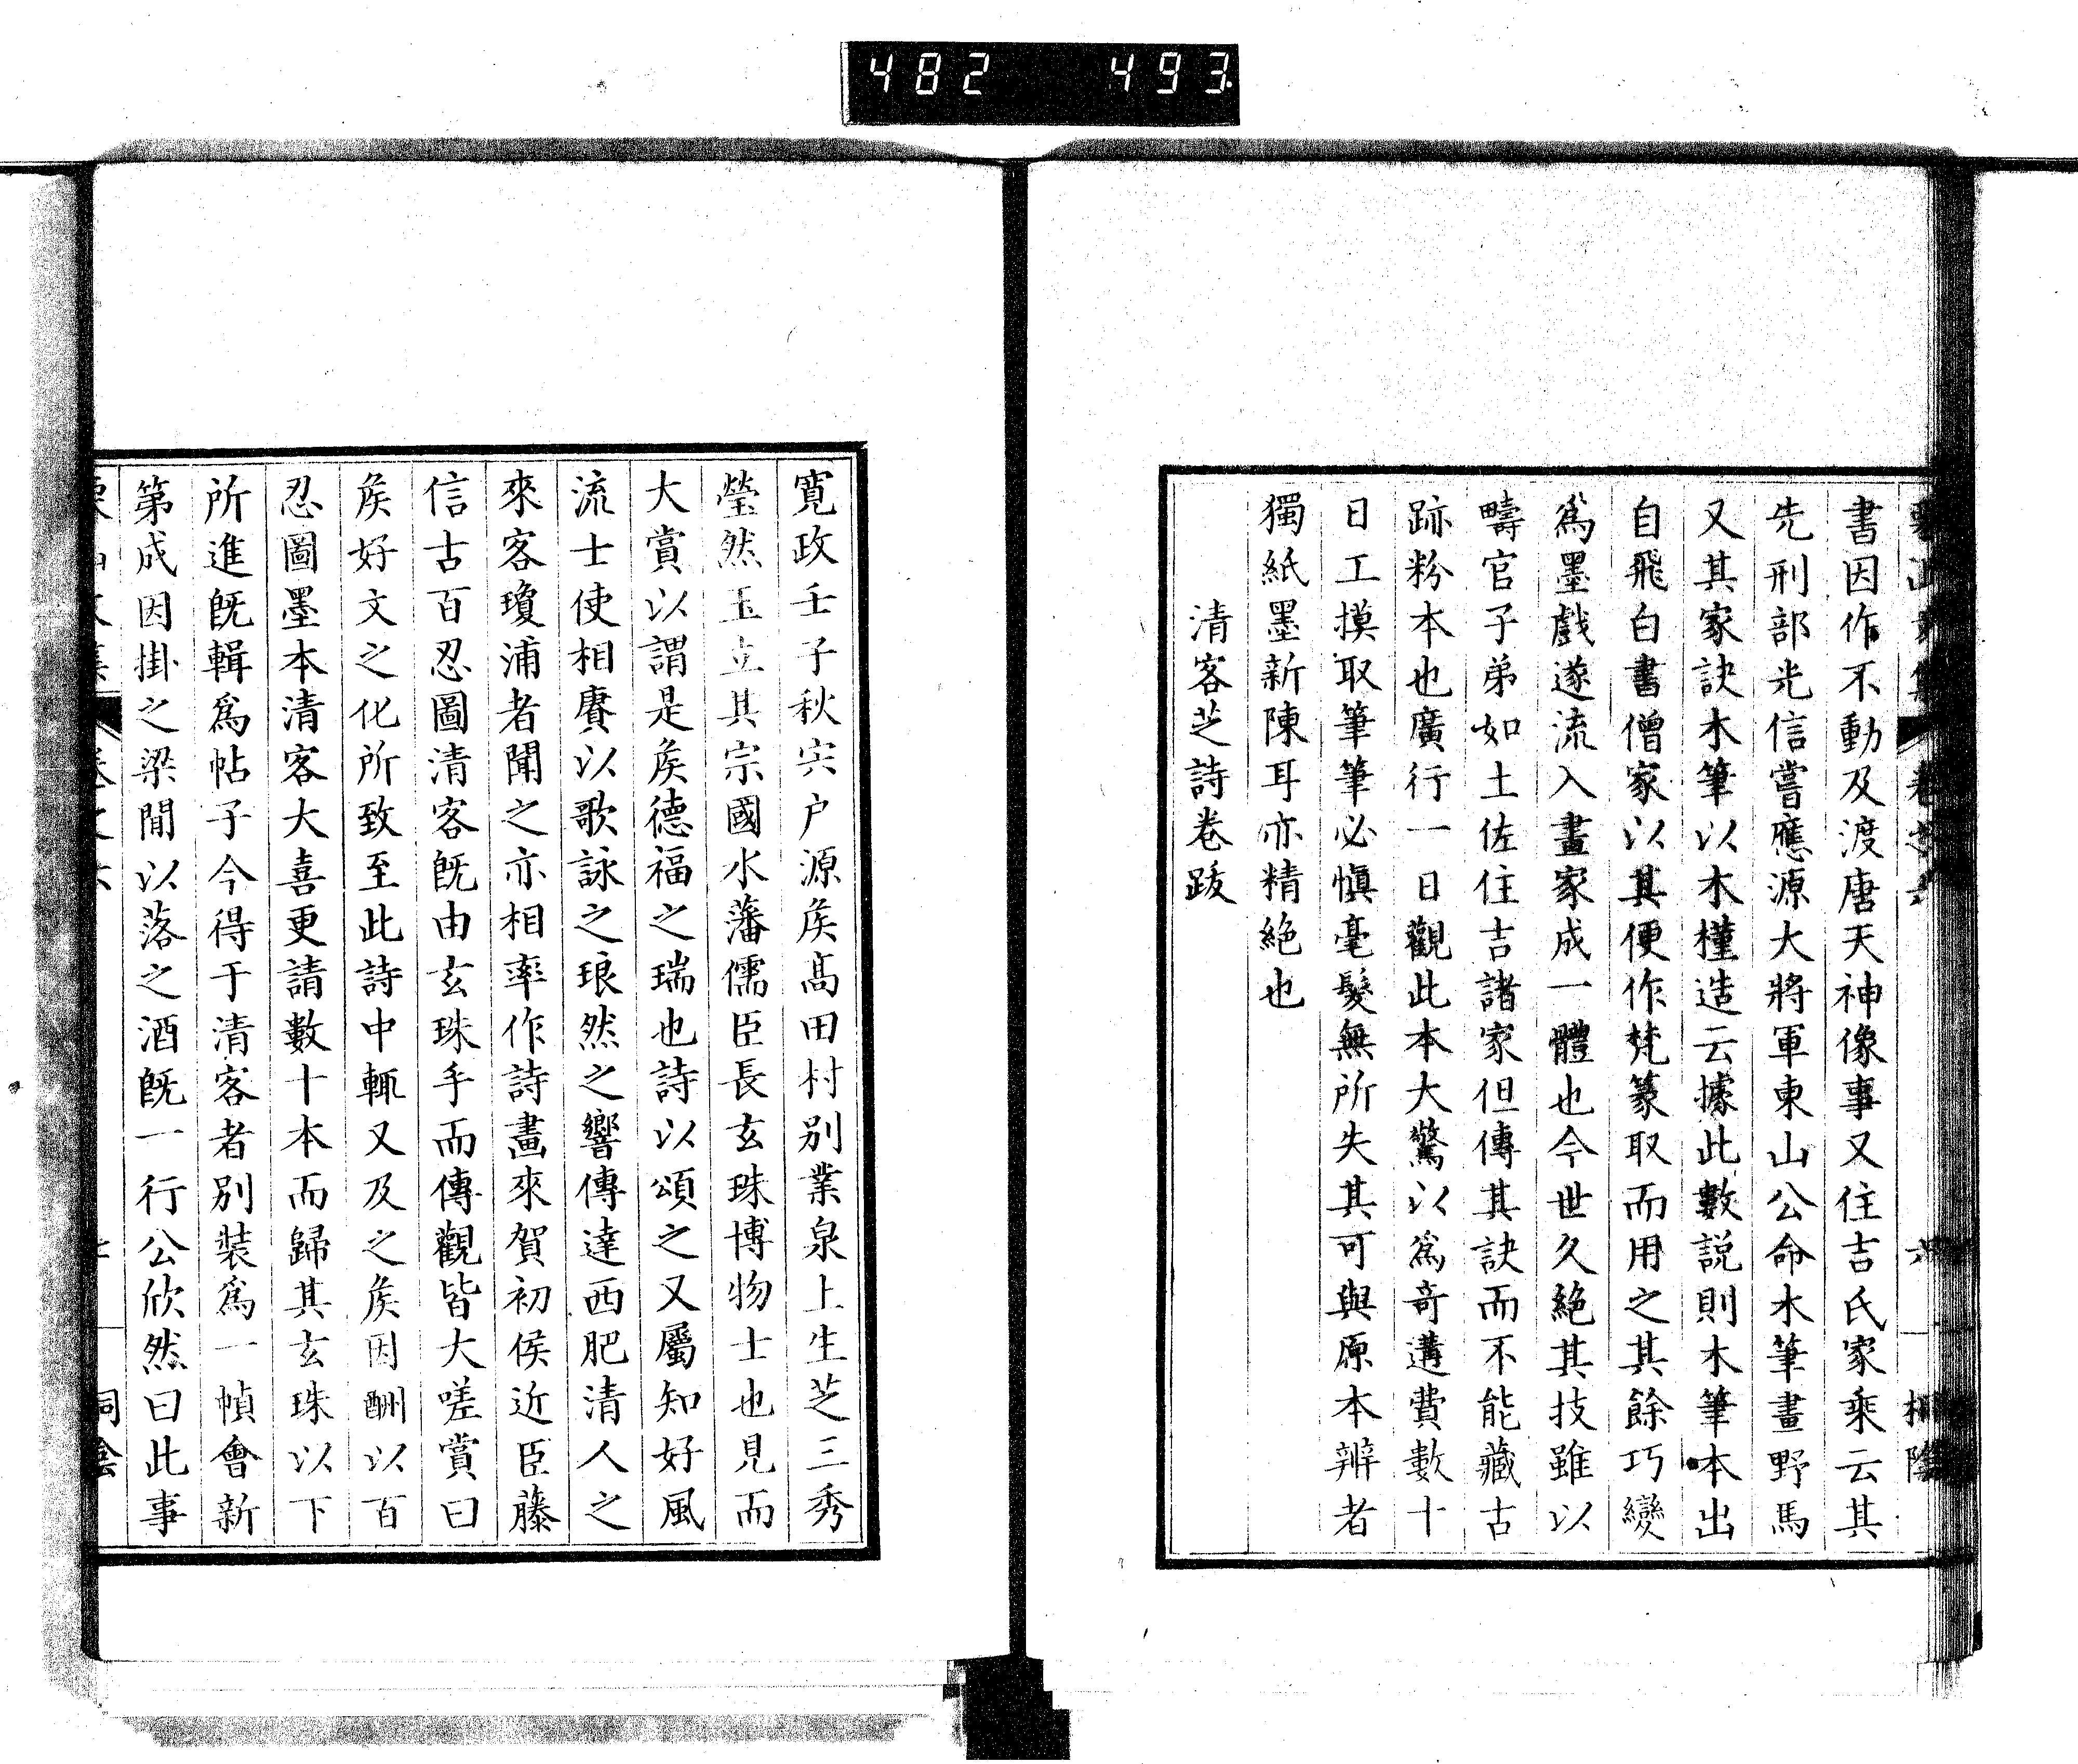 482 493
書因作不動及渡唐天神像事又住吉氏家乘云其
先刑部光信嘗應源大將軍東山公命木筆畫野馬
又其家訣木筆以木槿造云據此數説則木筆本出
自飛白書僧家以其便作梵篆取而用之其餘巧變
爲墨戲遂流入畫家成一體也今世久絶其技雖以
疇官子弟如土佐住吉諸家但傳其訣而不能藏古
跡粉本也廣行一日觀此本大驚以爲奇遘費數十
日工摸取筆筆必愼毫髮無所失其可與原本辨者
獨紙墨新陳耳亦精絶也
清客芝詩卷跋
寛政壬子秋宍户源矦髙田村別業泉上生芝三秀
瑩然玉立其宗國水藩儒臣長玄珠博物士也見而
大賞以謂是矦德福之瑞也詩以頌之又屬知好風
流士使相賡以歌詠之琅然之響傳達西肥清人之
來客瓊浦者聞之亦相率作詩畫來賀初侯近臣藤
信古百忍圖清客旣由玄珠手而傳觀皆大嗟賞曰
矦好文之化所致至此詩中輒又及之矦因酬以百
忍圖墨本清客大喜更請數十本而歸其玄珠以下
所進旣輯爲帖子今得于清客者別裝爲一幀會新
第成因掛之梁間以落之酒旣一行公欣然曰此事